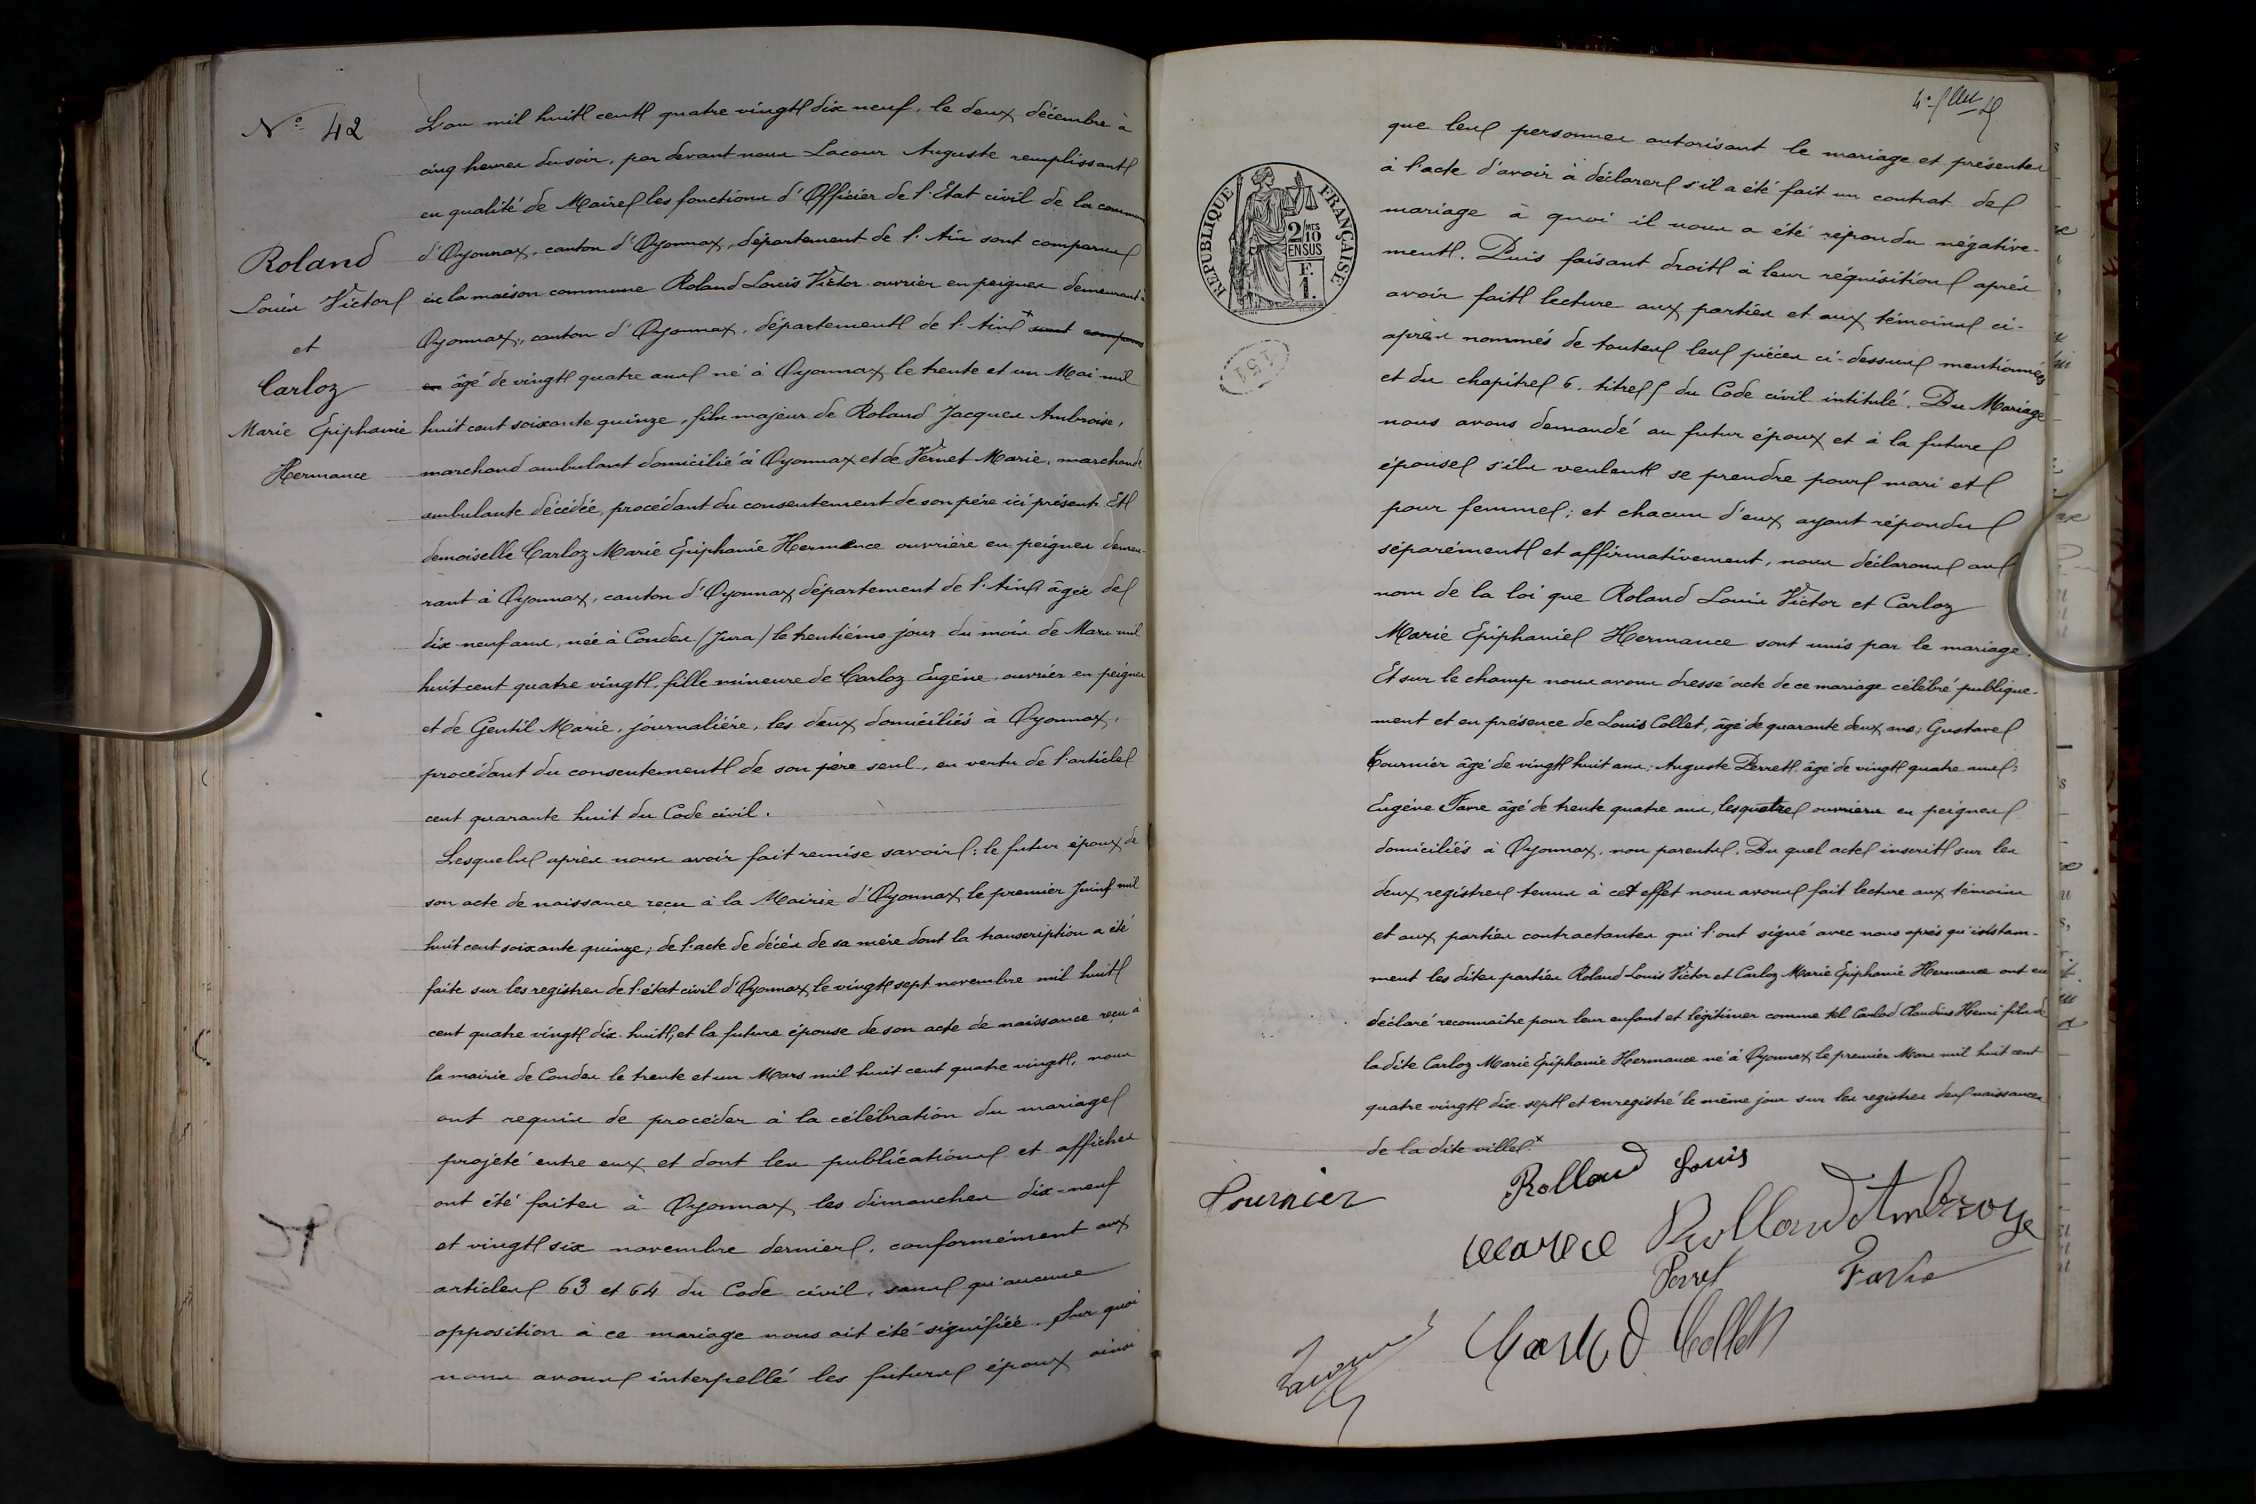 N° 42
Roland
Louis Victor
et
Carloz
Marie Epiphanie
Hermance
L'an mil huit cent quatre vingt dix neuf, le deux décembre à
cinq heures du soir, par devant nous Lacour Auguste remplissant
en qualité de Maire les fonctions d'Officier de l'Etat civil de la commune
d'Oyonnax, canton d'Oyonnax, département de l'Ain sont comparus
en la maison commune Roland Louis Victor ouvrier en peignes demeurant à
Oyonnax, canton d'Oyonnax, département de l'Ain + sont comparus
en âgé de vingt quatre ans né à Oyonnax le trente et un Mai mil
huit cent soixante quinze, fils majeur de Roland Jacques Ambroise,
marchand ambulant domicilié à Oyonnax et de Vernet Marie, marchande
ambulante décédée, procédant du consentement de son père ici présent. Et
demoiselle Carloz Marie Epiphanie Hermance ouvrière en peignes demeu-
rant à Oyonnax, canton d'Oyonnax département de l'Ain âgée de
dix neuf ans, née à Condes (Jura) le trentième jour du mois de Mars mil
huit cent quatre vingt, fille mineure de Carloz Eugène, ouvrier en peignes
et de Gentil Marie, journalière, les deux domiciliés à Oyonnax,
procédant du consentement de son père seul, en vertu de l'article
cent quarante huit du Code civil.
Lesquels après nous avoir fait remise savoir : le futur époux de
son acte de naissance reçu à la Mairie d'Oyonnax le premier Juin mil
huit cent soixante quinze ; de l'acte de décès de sa mère dont la transcription a été
faite sur les registres de l'état civil d'Oyonnax le vingt sept novembre mil huit
cent quatre vingt dix huit, et la future épouse de son acte de naissance reçu à
la mairie de Condes le trente et un Mars mil huit cent quatre vingt, nous
ont requis de procéder à la célébration du mariage
projeté entre eux et dont les publications et affiches
ont été faites à Oyonnax les dimanches dix-neuf
et vingt six novembre dernier, conformément aux
articles 63 et 64 du Code civil, sans qu'aucune
opposition à ce mariage nous ait été signifiée. Sur quoi
nous avons interpellé les futurs époux ainsi
REPUBLIQUE FRANÇAISE
2/10 MES
EN SUS
F.
1.
151
que les personnes autorisant le mariage et présentes
à l'acte d'avoir à déclarer s'il a été fait un contrat de
mariage à quoi il nous a été répondu négative-
ment. Puis faisant droit à leur réquisition après
avoir fait lecture aux parties et aux témoins ci-
après nommés de toutes les pièces ci-dessus mentionnées
et du chapitre 6. titre 5 du Code civil intitulé. Du Mariage
nous avons demandé au futur époux et à la future
épouse s'ils veulent se prendre pour mari et
pour femme ; et chacun d'eux ayant répondu
séparément et affirmativement, nous déclarons au
nom de la loi que Roland Louis Victor et Carloz
Marie Epiphanie Hermance sont unis par le mariage.
Et sur le champ nous avons dressé acte de ce mariage célébré publique-
ment et en présence de Louis Collet, âgé de quarante deux ans ; Gustave
Tournier âgé de vingt huit ans ; Auguste Perret âgé de vingt quatre ans ;
Eugène Favre âgé de trente quatre ans, les quatre ouvriers en peignes
domiciliés à Oyonnax, non parents. Du quel acte inscrit sur les
deux registres tenus à cet effet nous avons fait lecture aux témoins
et aux parties contractantes qui l'ont signé avec nous après qu'instam-
ment les dites parties Roland Louis Victor et Carloz Marie Epiphanie Hermance ont eu
déclaré reconnaître pour leur enfant et légitimer comme tel Carlod Claudius Henri fils de
la dite Carloz Marie Epiphanie Hermance né à Oyonnax le premier Mars mil huit cent
quatre vingt dix sept et enregistré le même jour sur les registres des naissances
de la dite ville. x
Tournier
Rolland Louis
Marie Rolland Ambroise
Perret Favre
Carlod Collet
Lacour